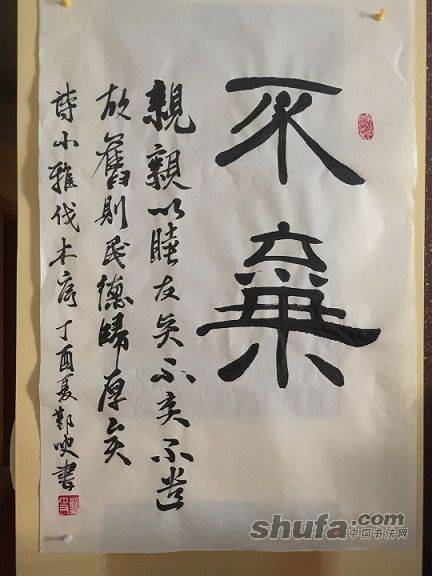 不棄
親親以睦友賢不弃不遺
故舊則民德歸厚矣
詩小雅伐木序丁酉夏書
shufa.com
中国书法网